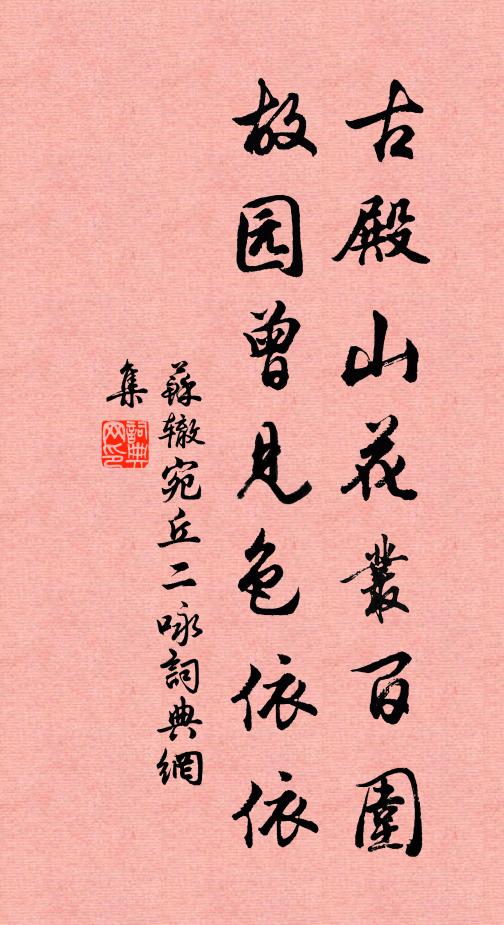 古殿山花叢百圍
故园曾見色依依
蘇辙宛丘二咏詞典網
集
詞典網印